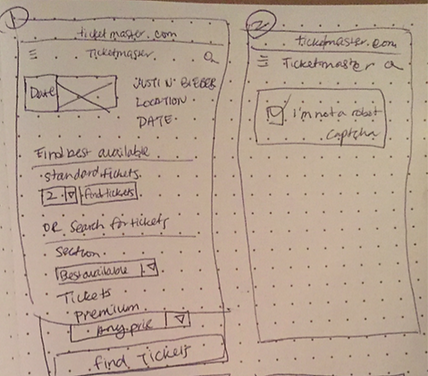 1
ticketmaster.com
Ticketmaster
Date
JUSTIN BIEBER
LOCATION
DATE.
Find best available
standard tickets.
2 find tickets
OR Search for tickets
Section
Best available
Tickets
Premium
Any price
find Tickets
2
ticketmaster.com
Ticketmaster
I'm not a robot
Captcha